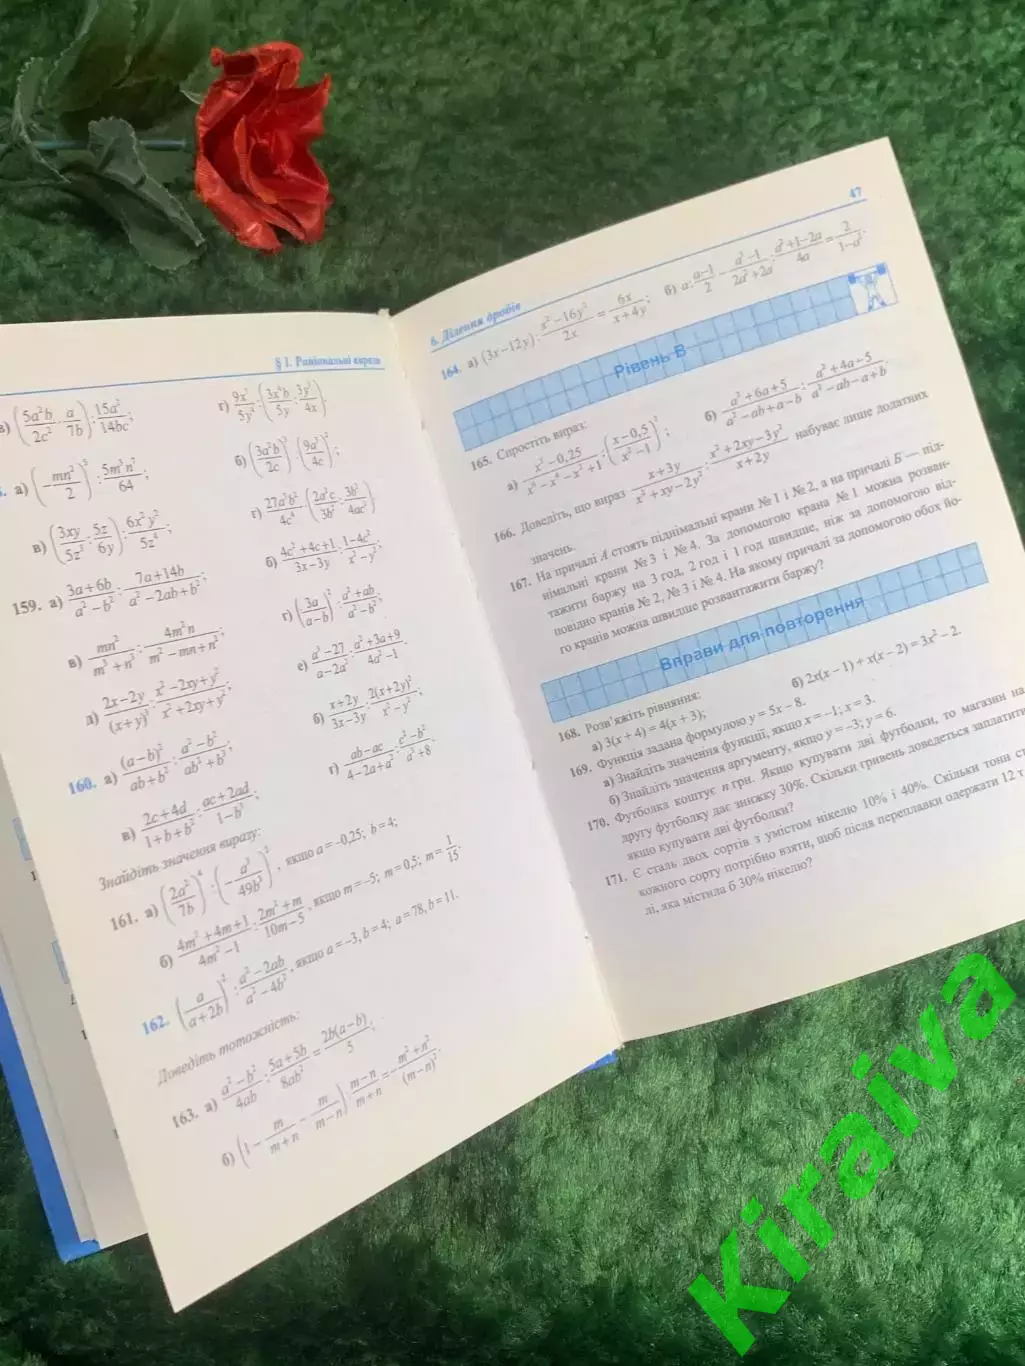 § 1. Раціональні вирази
в) (5a²b/2c² · a/7b) : 15a²/14bc;
г) 9x³/5y⁴ : (3x⁴b/5y : 3y³/4x).
а) (−mn²/2)⁵ : 5m³n⁷/64;
б) (3a²b/2c)³ : (9a³/4c)²;
в) (3xy/5z³ : 5z/6y) : 6x²y²/5z⁴;
г) 27a³b²/4c⁴ : (2a²c/3b² · 3b²/4ac³).
159. а) 3a+6b/a²−b² : 7a+14b/a²−2ab+b²;
б) 4c²+4c+1/3x−3y : 1−4c²/x²−y²;
в) mn²/m³+n³ : 4m²n/m²−mn+n²;
г) (3a/a−b)² : a²+ab/a²−b²;
д) 2x−2y/(x+y)³ : x²−2xy+y²/x²+2xy+y²;
е) a³−27/a−2a² : a²+3a+9/4a²−1
160. а) (a−b)²/ab+b² : a²−b²/ab²+b³;
б) x+2y/3x−3y : 2(x+2y)²/x²−y²;
в) 2c+4d/1+b+b² : ac+2ad/1−b³;
г) ab−ac/4−2a+a² : c²−b²/a³+8.
Знайдіть значення виразу:
161. а) (2a²/7b)⁴ : (−a³/49b³)², якщо a=−0,25; b=4;
б) 4m²+4m+1/4m²−1 : 2m²+m/10m−5, якщо m=−5; m=0,5; m=1/15.
162. (a/a+2b)² : a²−2ab/a²−4b², якщо a=−3, b=4; a=78, b=11.
Доведіть тотожність:
163. а) a²−b²/4ab : 5a+5b/8ab² = 2b(a−b)/5;
б) (1−m/m+n − m/m−n) : m−n/m+n = −m²+n²/(m−n)².
6. Ділення дробів 47
164. а) (3x−12y) : x²−16y²/2x = 6x/x+4y; б) a : a−1/2 − a³−1/2a²+2a : a²+1−2a/4a = 2/1−a².
Рівень В
165. Спростіть вираз:
а) x³−0,25/x⁶−x⁴−x²+1 : (x−0,5/x²−1)²;
б) a²+6a+5/a²−ab+a−b : a²+4a−5/a²−ab−a+b
166. Доведіть, що вираз x+3y/x²+xy−2y² : x²+2xy−3y²/x+2y набуває лише додатних
значень.
167. На причалі А стоять піднімальні крани № 1 і № 2, а на причалі Б — під-
німальні крани № 3 і № 4. За допомогою крана № 1 можна розван-
тажити баржу на 3 год, 2 год і 1 год швидше, ніж за допомогою від-
повідно кранів № 2, № 3 і № 4. На якому причалі за допомогою обох йо-
го кранів можна швидше розвантажити баржу?
Вправи для повторення
168. Розв'яжіть рівняння:
а) 3(x+4) = 4(x+3);
б) 2x(x−1) + x(x−2) = 3x²−2.
169. Функція задана формулою y = 5x − 8.
а) Знайдіть значення функції, якщо x = −1; x = 3.
б) Знайдіть значення аргументу, якщо y = −3; y = 6.
170. Футболка коштує n грн. Якщо купувати дві футболки, то магазин на
другу футболку дає знижку 30%. Скільки гривень доведеться заплатити,
якщо купувати дві футболки?
171. Є сталь двох сортів з умістом нікелю 10% і 40%. Скільки тонн
кожного сорту потрібно взяти, щоб після переплавки одержати 12 т
лі, яка містила б 30% нікелю?
Kiraiva